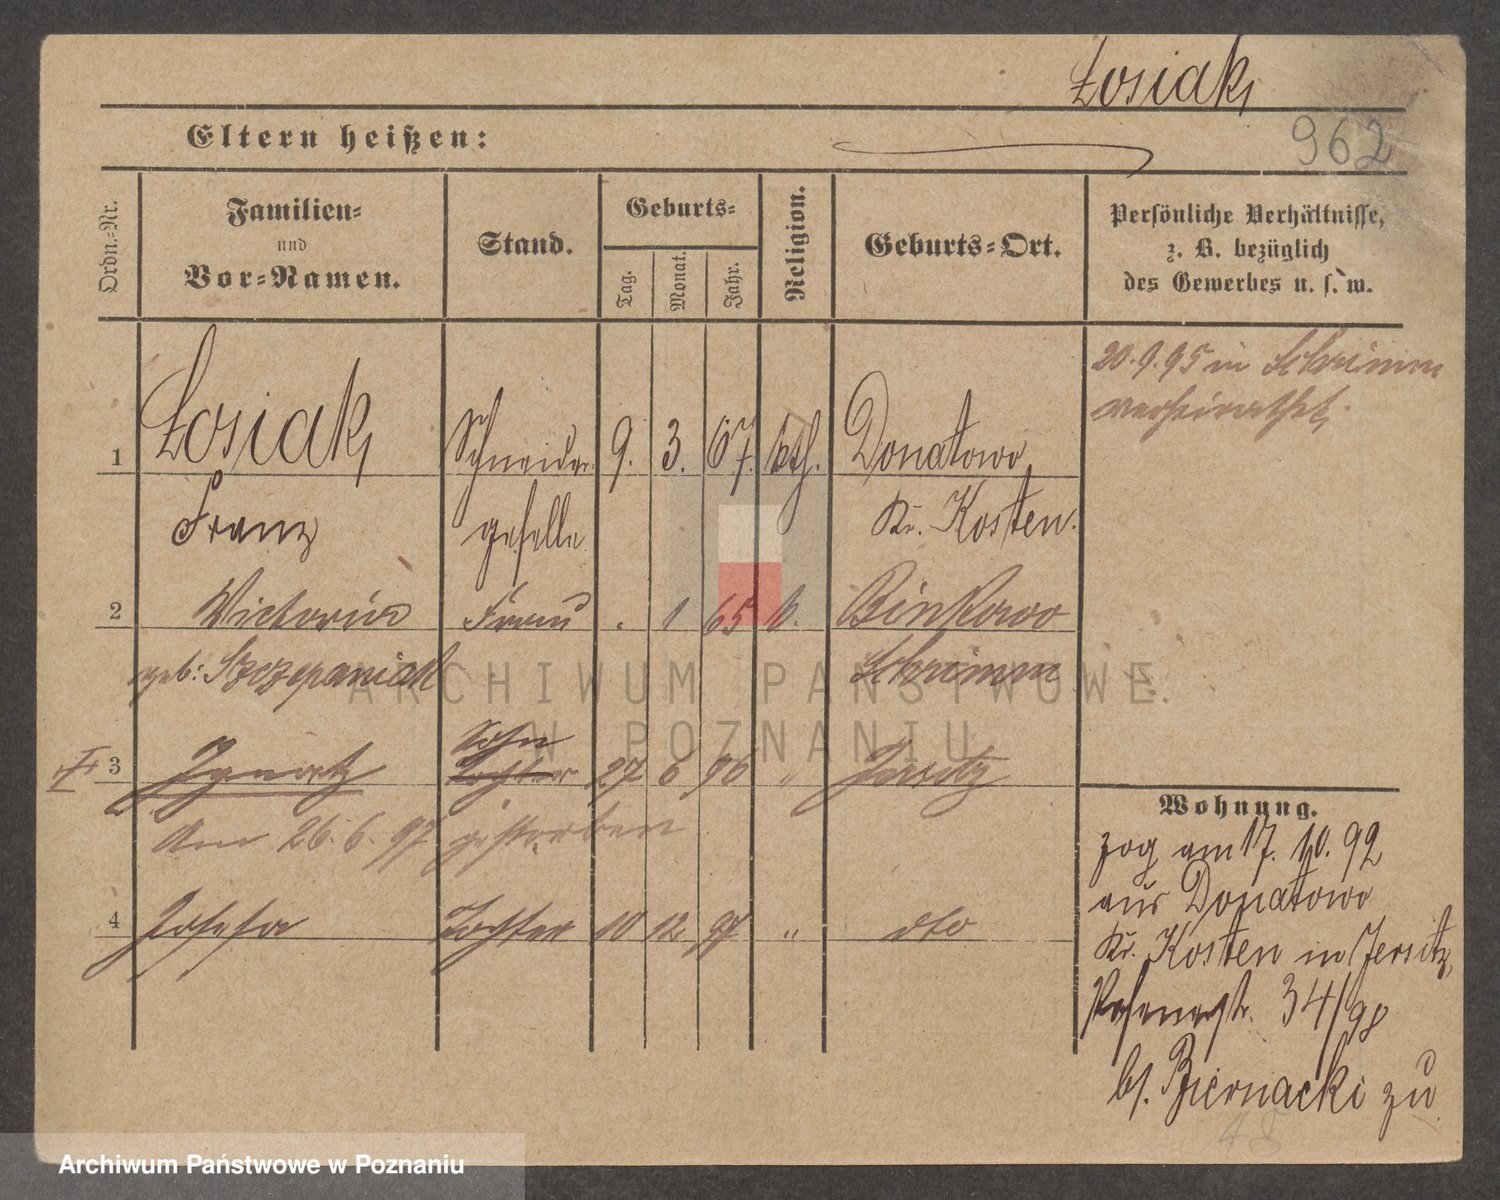 Łosiak,
962
Eltern heißen:
Ordn.-Nr.
Familien-
und
Vor-Namen.
Stand.
Geburts-
Tag.
Monat.
Jahr.
Religion.
Geburts-Ort.
Persönliche Verhältnisse,
z. B. bezüglich
des Gewerbes u. s. w.
20.9.95 in Schrimm
verheirathet.
1 Łosiak, Schneider 9. 3. 67. kth. Donatowo
Franz geselle Kr. Kosten.
2 Victoria Frau . 1 65 k. Binkowo
geb: Szczepaniak Schrimm
3 Ignatz Sohn Tochter 27 6 96 " Jersitz
Am 26.6.97 gestorben
4 Josefa Tochter 10 12 97 " dto
Wohnung.
zog am 17. 10. 92
aus Donatowo
Kr. Kosten in Jersitz,
Posenerstr. 34/98
bs. Biernacki zu
48
ARCHIWUM PAŃSTWOWE
W POZNANIU
Archiwum Państwowe w Poznaniu